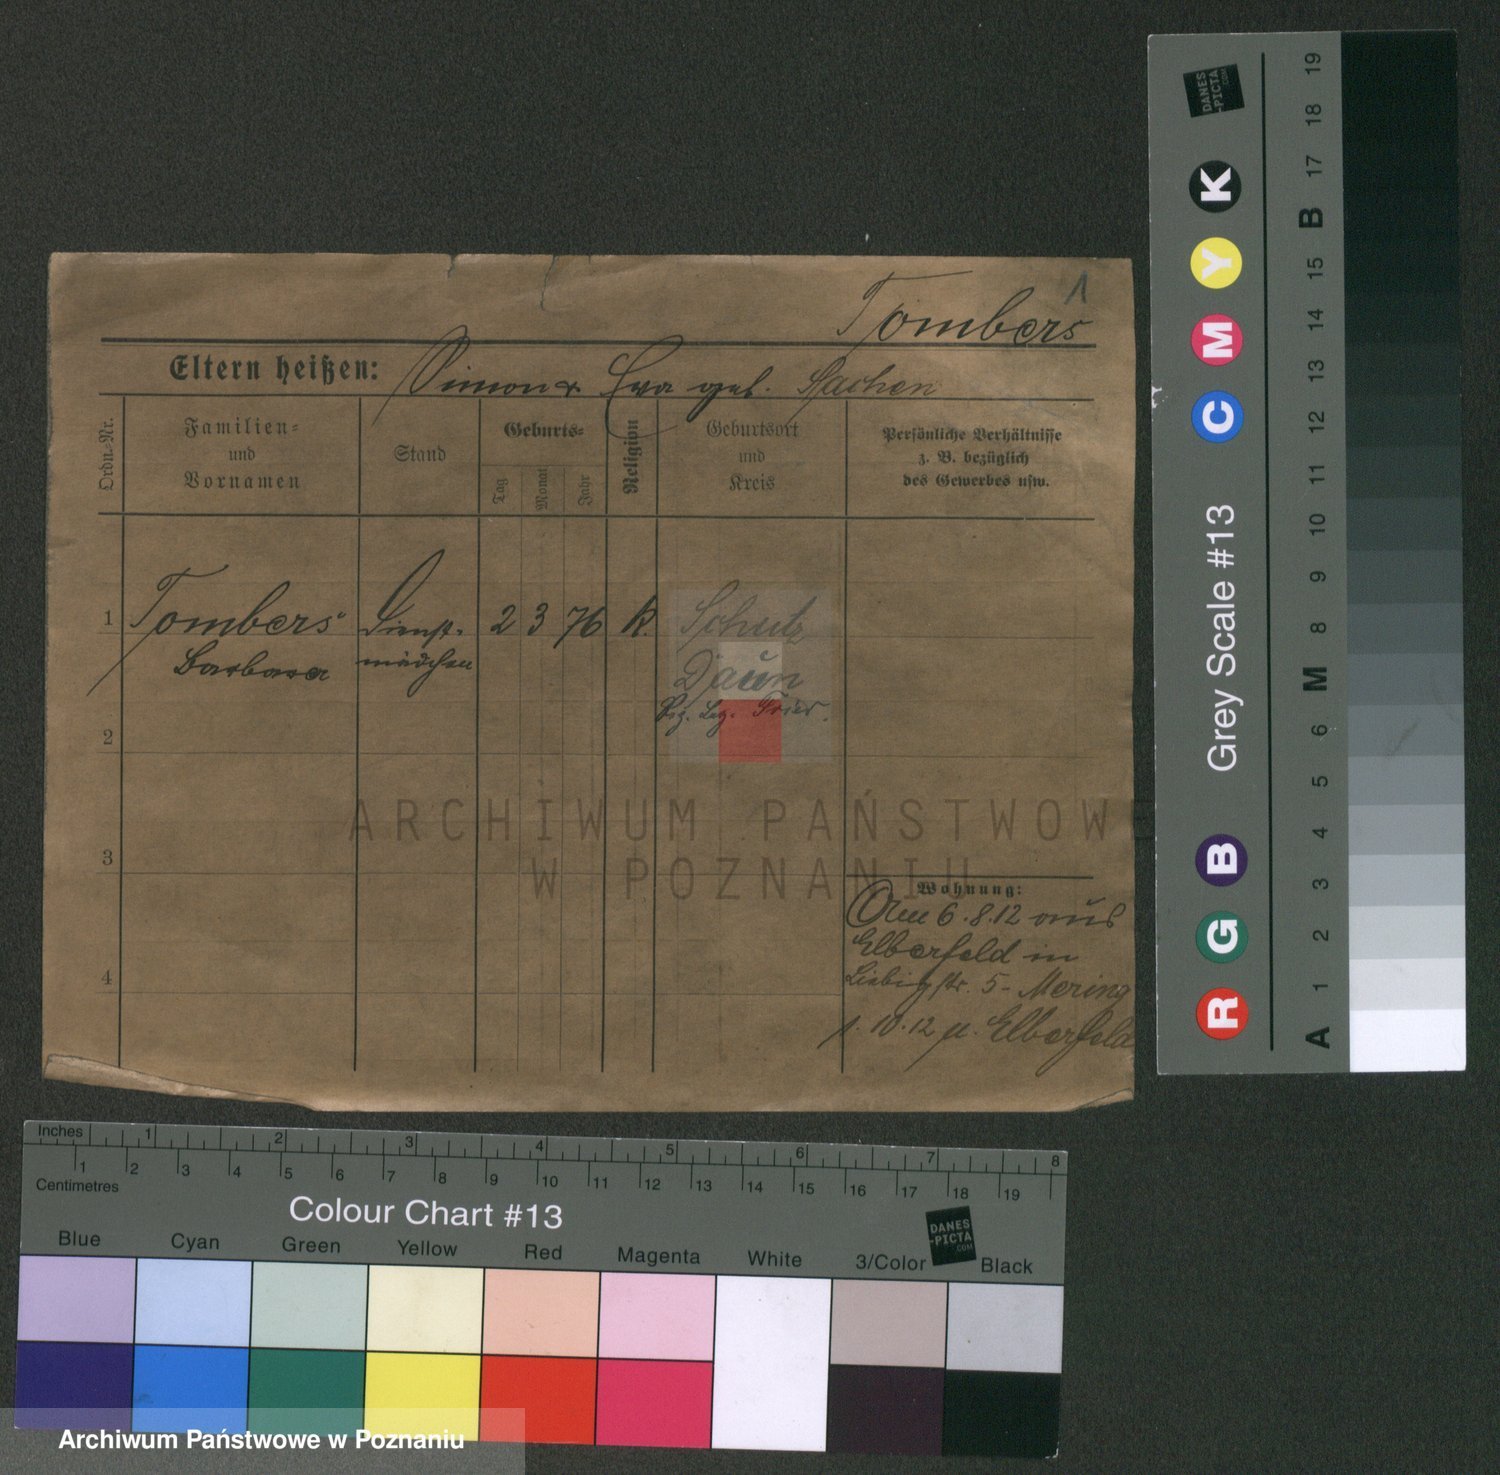 1
Tombers
Eltern heißen: Simon & Eva geb. Sachen
Ordn.-Nr.
Familien- und Vornamen
Stand
Geburts-
Tag
Monat
Jahr
Religion
Geburtsort und Kreis
Persönliche Verhältnisse
z. B. bezüglich
des Gewerbes usw.
1 Tombers Dienst- 2 3 76 k. Schutz
Barbara mädchen Daun
Rg. Bez. Trier.
2
3
4
Wohnung:
Am 6.8.12 aus
Elberfeld in
Liebigstr. 5- Mering
1.10.12 n. Elberfeld
ARCHIWUM PAŃSTWOWE
W POZNANIU
DANES
-PICTA
.COM
R G B C M Y K
Grey Scale #13
A 1 2 3 4 5 6 M 8 9 10 11 12 13 14 15 B 17 18 19
Inches 1 2 3 4 5 6 7 8
1 2 3 4 5 6 7 8 9 10 11 12 13 14 15 16 17 18 19
Centimetres
Colour Chart #13
DANES
-PICTA
.COM
Blue Cyan Green Yellow Red Magenta White 3/Color Black
Archiwum Państwowe w Poznaniu